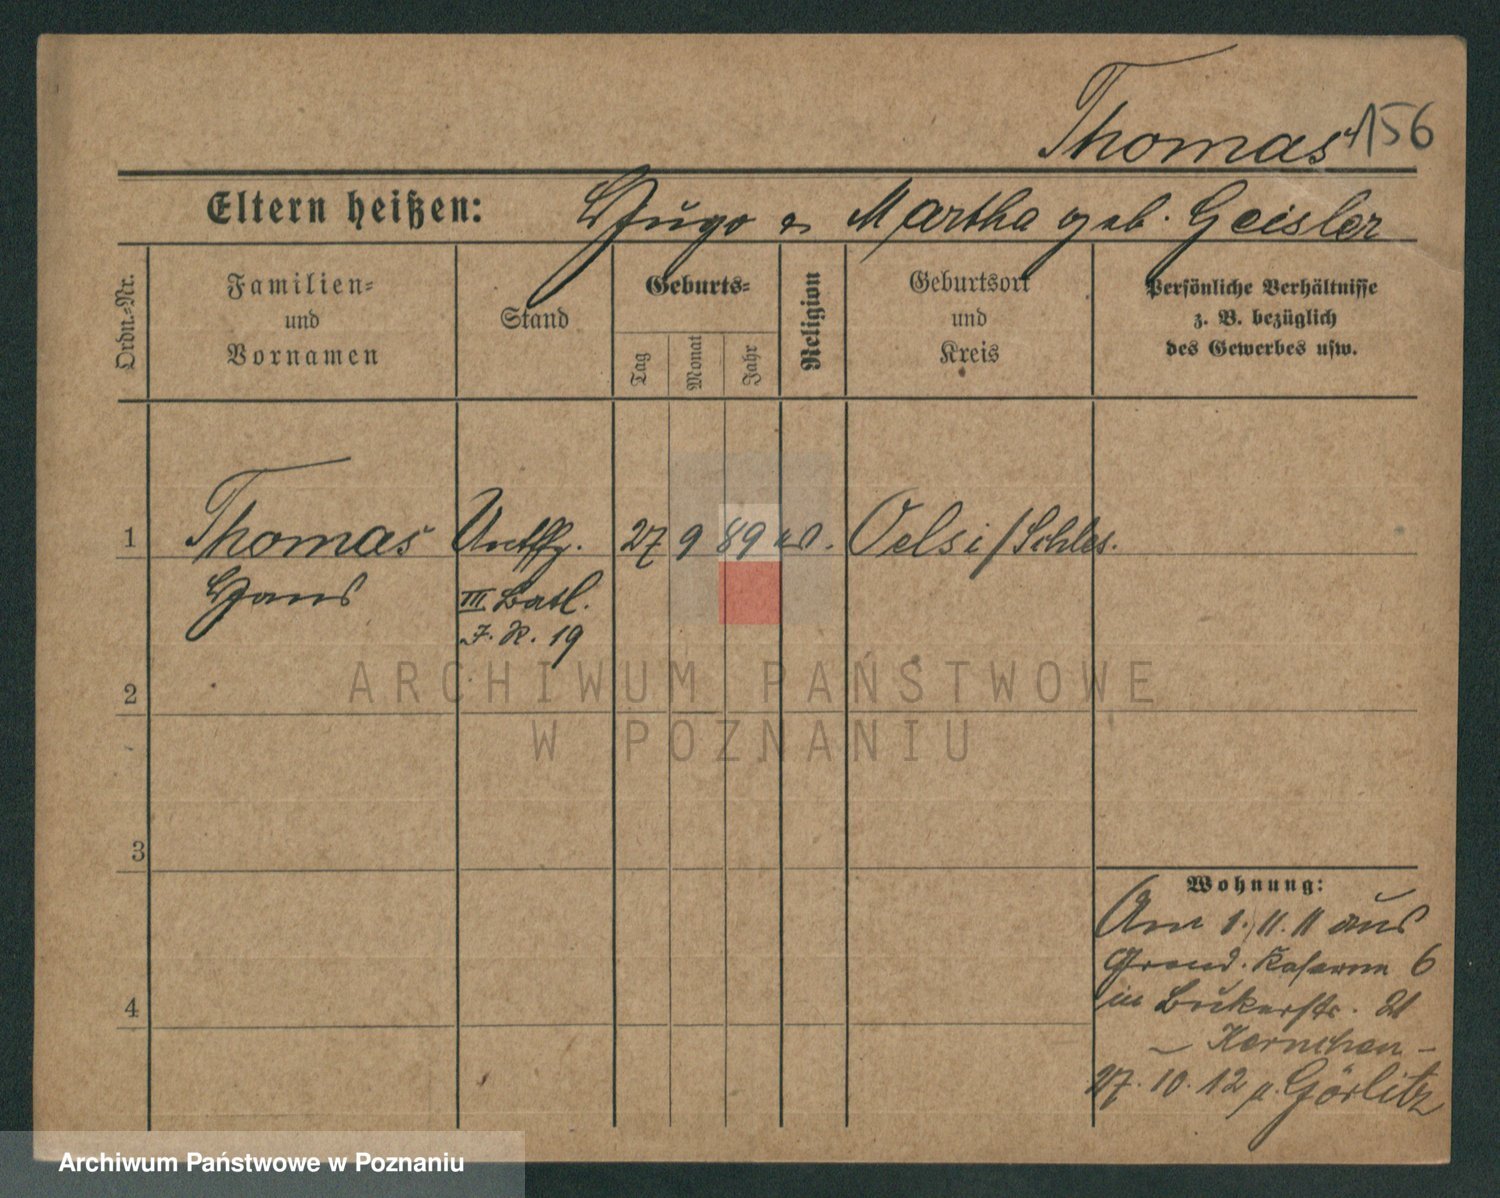 Thomas 156
Eltern heißen: Hugo & Martha geb. Geisler
Ordn.-Nr.
Familien-
und
Vornamen
Stand
Geburts-
Tag
Monat
Jahr
Religion
Geburtsort
und
Kreis
Persönliche Verhältnisse
z. B. bezüglich
des Gewerbes usw.
1 Thomas 27 9 89 Oels i/Schles.
Hans III. Batl.
I. R. 19
2
3
4
Wohnung:
Am 1. 11. 11 aus
Grend. Kaserne 6
in Bukerstr. 21
27. 10. 12 n. Görlitz
ARCHIWUM PAŃSTWOWE
W POZNANIU
Archiwum Państwowe w Poznaniu